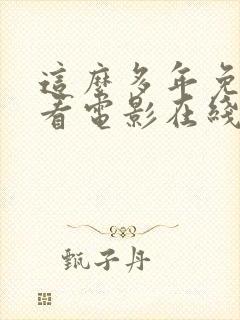 這麼多年免
看電影在綫
甄子丹